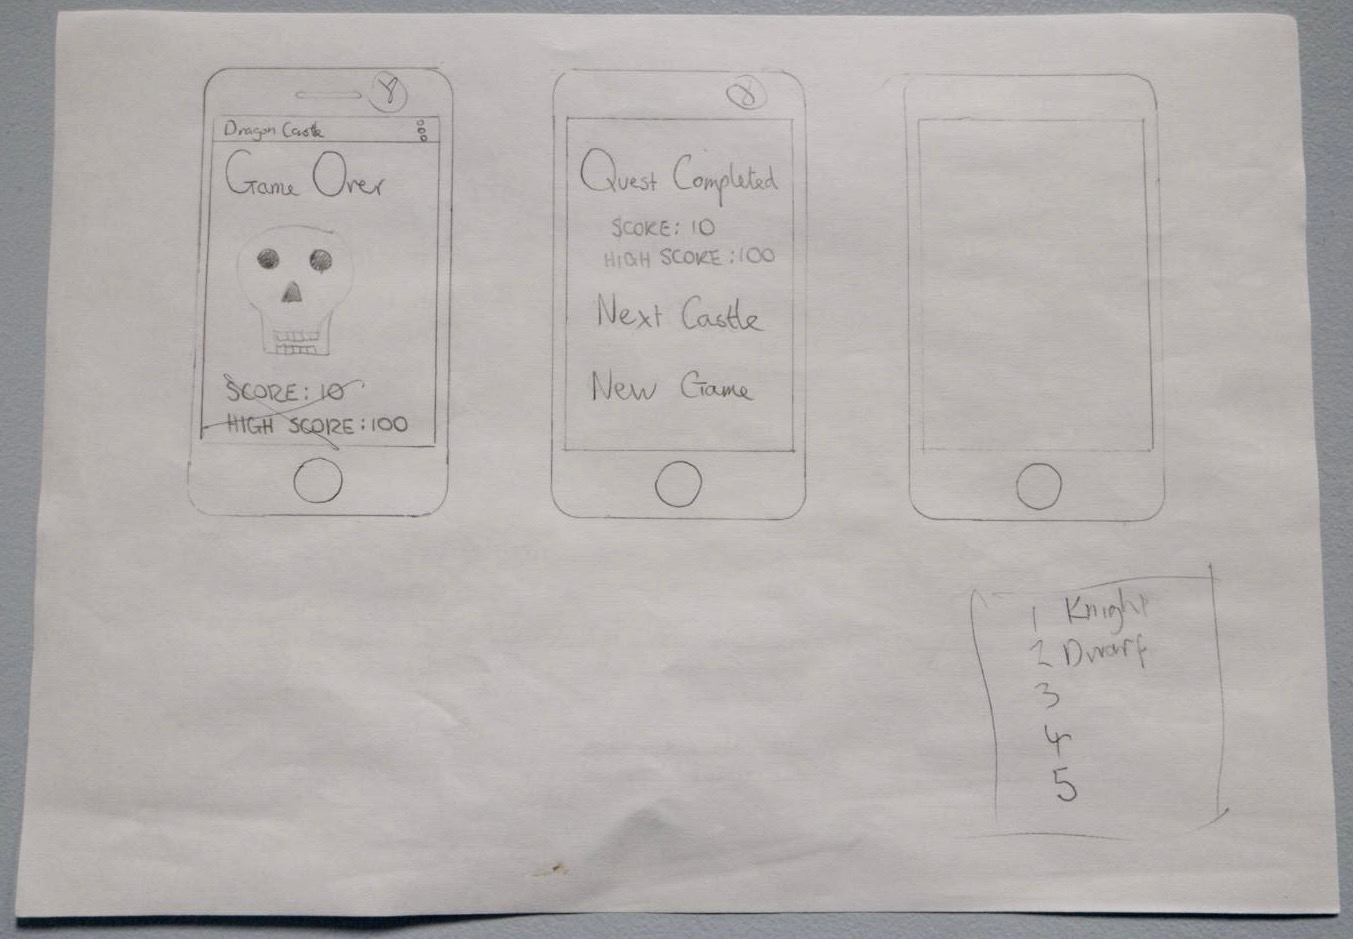 Dragon Castle
Game Over
SCORE: 10
HIGH SCORE: 100
Quest Completed
SCORE: 10
HIGH SCORE: 100
Next Castle
New Game
1 Knight
2 Dwarf
3
4
5